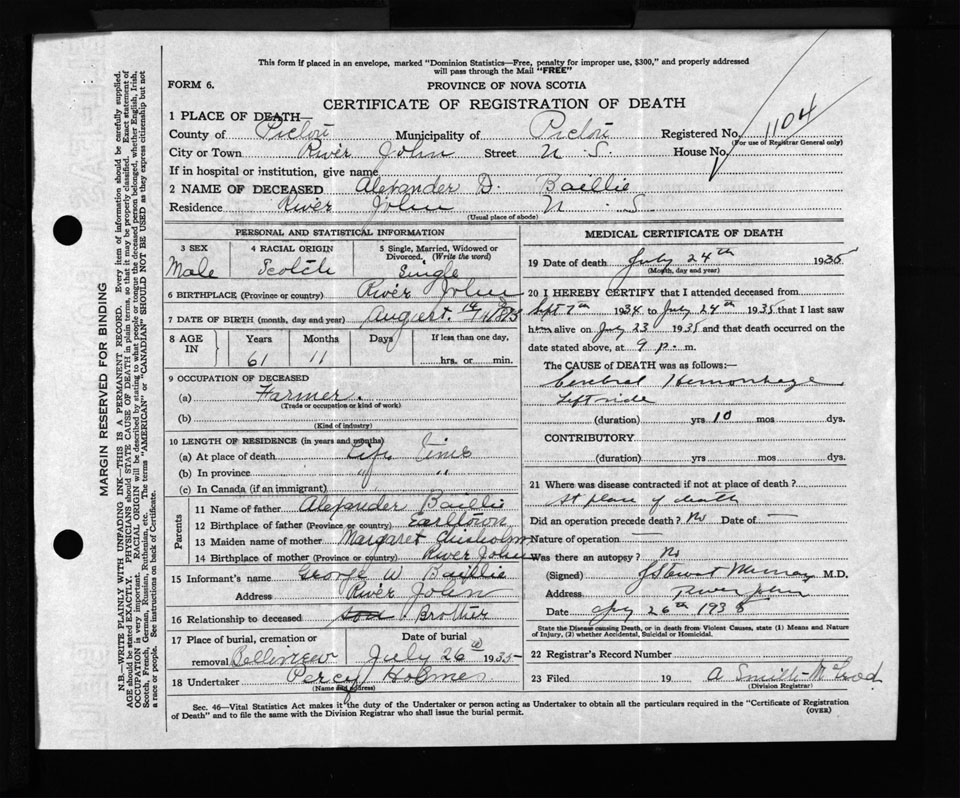 This form if placed in an envelope, marked "Dominion Statistics—Free, penalty for improper use, $300," and properly addressed
will pass through the Mail "FREE"
FORM 6.
PROVINCE OF NOVA SCOTIA
CERTIFICATE OF REGISTRATION OF DEATH
1 PLACE OF DEATH—
County of Pictou Municipality of Pictou Registered No. 1104
(For use of Registrar General only)
City or Town River John Street N. S. House No.
If in hospital or institution, give name
2 NAME OF DECEASED Alexander D. Baillie
Residence River John N. S.
(Usual place of abode)
PERSONAL AND STATISTICAL INFORMATION
3 SEX 4 RACIAL ORIGIN 5 Single, Married, Widowed or
Divorced, (Write the word)
Male Scotch Single
6 BIRTHPLACE (Province or country) River John
7 DATE OF BIRTH (month, day and year) August 14
8 AGE IN Years Months Days If less than one day,
61 11 hrs. or min.
9 OCCUPATION OF DECEASED
(a) Farmer.
(Trade or occupation or kind of work)
(b)
(Kind of industry)
10 LENGTH OF RESIDENCE (in years and months)
(a) At place of death Life time
(b) In province " "
(c) In Canada (if an immigrant)
Parents
11 Name of father Alexander Baillie
12 Birthplace of father (Province or country) Earltown
13 Maiden name of mother Margaret Chisholm
14 Birthplace of mother (Province or country) River John
15 Informant's name George W Baillie
Address River John
16 Relationship to deceased Brother
17 Place of burial, cremation or Date of burial
removal Bellview July 26 1935
18 Undertaker Percy Holmes
(Name and address)
MEDICAL CERTIFICATE OF DEATH
19 Date of death July 24th 1935
(Month, day and year)
20 I HEREBY CERTIFY that I attended deceased from
Sept 7th 1934 to July 24th 1935 that I last saw
him alive on July 23 1935 and that death occurred on the
date stated above, at 9 p. m.
The CAUSE of DEATH was as follows:
Cerebral Hemorrhage
Left side
(duration) yrs 10 mos dys.
CONTRIBUTORY
(duration) yrs mos dys.
21 Where was disease contracted if not at place of death?
At place of death
Did an operation precede death? No Date of —
Nature of operation —
Was there an autopsy? No
(Signed) J Stewart Murray M.D.
Address River John
Date 26th 193
State the Disease causing Death, or in death from Violent Causes, state (1) Means and Nature
of Injury, (2) whether Accidental, Suicidal or Homicidal.
22 Registrar's Record Number
23 Filed 19 A Smith McLeod
(Division Registrar)
Sec. 46—Vital Statistics Act makes it the duty of the Undertaker or person acting as Undertaker to obtain all the particulars required in the "Certificate of Registration
of Death" and to file the same with the Division Registrar who shall issue the burial permit.
(OVER)
MARGIN RESERVED FOR BINDING
N.B.—WRITE PLAINLY WITH UNFADING INK—THIS IS A PERMANENT RECORD. Every item of information should be carefully supplied.
AGE should be stated EXACTLY. PHYSICIANS should STATE CAUSE OF DEATH in plain terms, so that it may be properly classified. Exact statement of
OCCUPATION is very important. RACIAL ORIGIN will be described by stating to what people or tongue the deceased person belonged, whether English, Irish,
Scotch, French, German, Russian, Ruthenian, etc. The terms "AMERICAN" or "CANADIAN" SHOULD NOT BE USED as they express citizenship but not
a race or people. See instructions on back of Certificate.